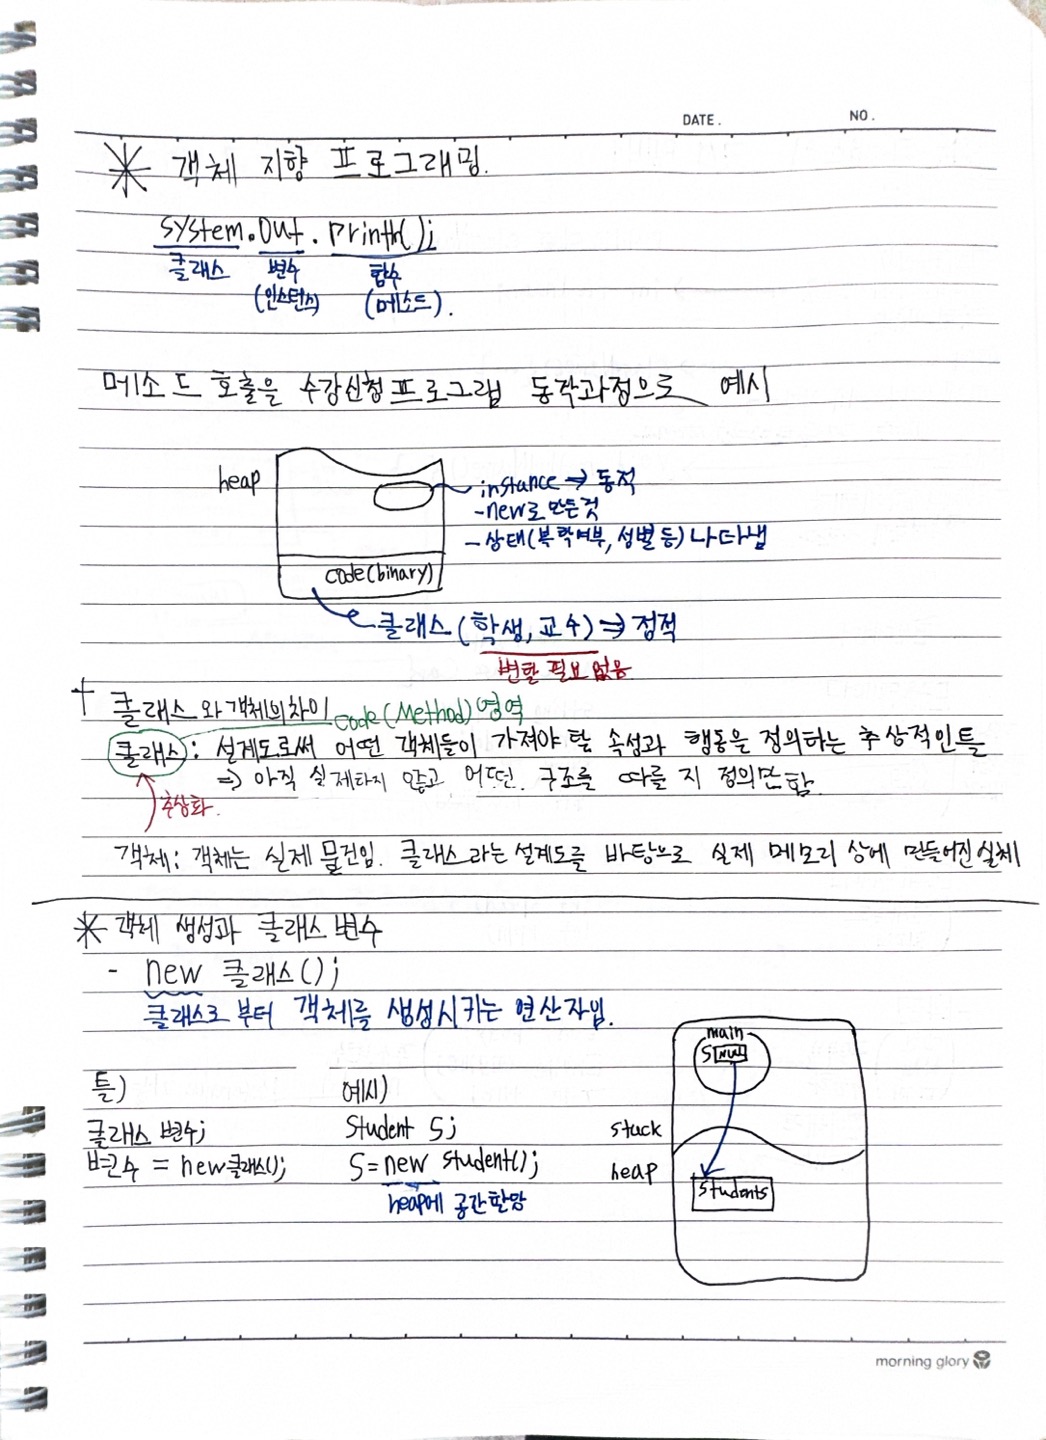 DATE. NO.
* 객체 지향 프로그래밍.
System.Out.println();
클래스 변수 함수
(인스턴스) (메소드).
메소드 호출을 수강신청 프로그램 동작과정으로 예시
heap
instance → 동적
-new로 만든것
-상태(복학여부, 성별 등) 나타냄
code(binary)
클래스 (학생, 교수) ⇒ 정적
변할 필요 없음
† 클래스와 객체의 차이
code(Method) 영역
클래스: 설계도로써 어떤 객체들이 가져야 할 속성과 행동을 정의하는 추상적인 틀
⇒ 아직 실제하지 않고 어떤 구조를 따를 지 정의만 함.
추상화.
객체: 객체는 실제 물건임. 클래스라는 설계도를 바탕으로 실제 메모리 상에 만들어진 실체
* 객체 생성과 클래스 변수
- new 클래스();
클래스로 부터 객체를 생성시키는 연산자임.
main
S NULL
틀) 예시)
클래스 변수; Student S; stack
변수 = new클래스(); S=new student(); heap
students
heap에 공간할당
morning glory